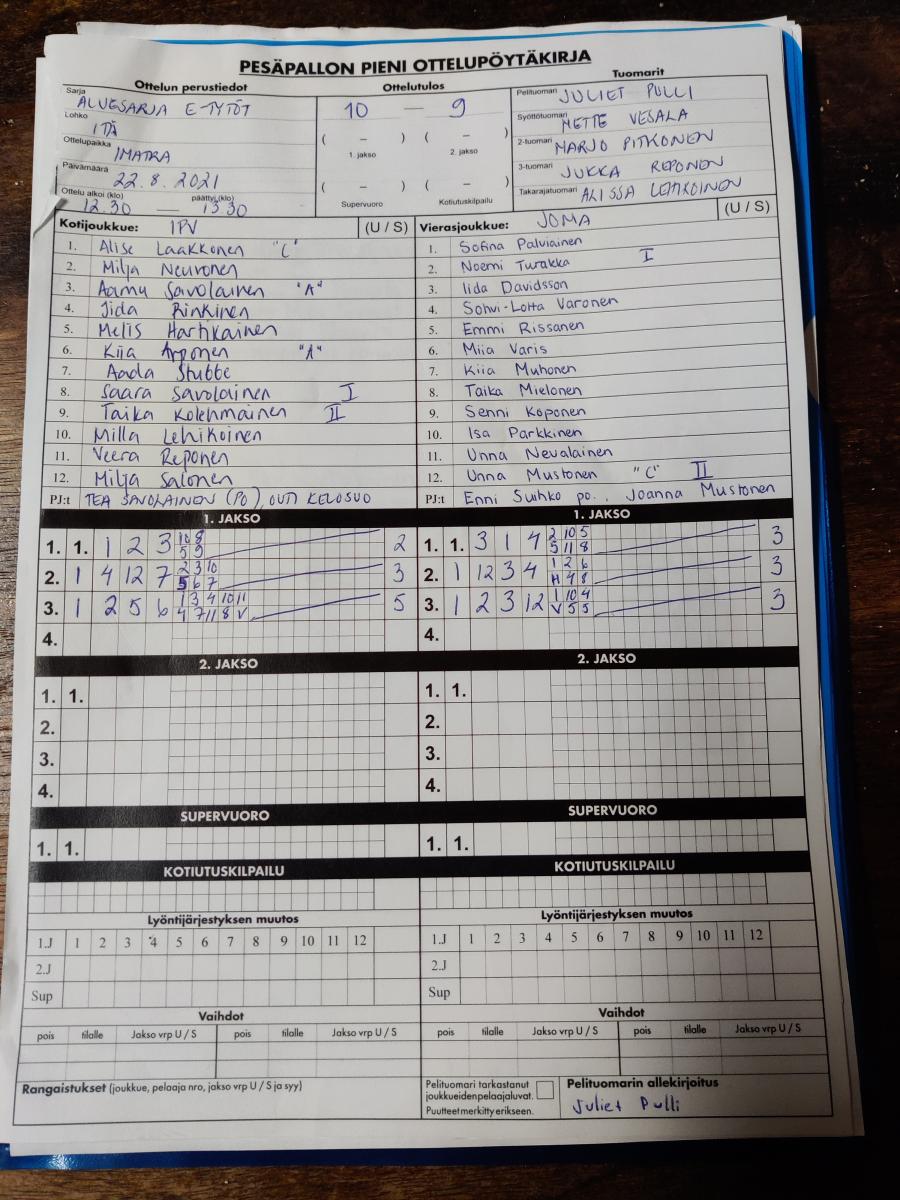 PESÄPALLON PIENI OTTELUPÖYTÄKIRJA
Ottelun perustiedot
Sarja ALUESARJA E-TYTÖT
Lohko ITÄ
Ottelupaikka IMATRA
Päivämäärä 22.8.2021
Ottelu alkoi (klo) päättyi (klo)
12.30 — 13.30
Ottelutulos
10 — 9
( – ) ( – )
1. jakso 2. jakso
( – ) ( – )
Supervuoro Kotiutuskilpailu
Tuomarit
Pelituomari JULIET PULLI
Syöttötuomari METTE VESALA
2-tuomari MARJO PITKONEN
3-tuomari JUKKA REPONEN
Takarajatuomari ALISSA LEHKOINEN
Kotijoukkue: IPV (U / S)
1. Alise Laakkonen "C"
2. Milja Neuvonen
3. Aamu Savolainen "A"
4. Iida Rinkinen
5. Melis Hartikainen
6. Kiia Arponen "A"
7. Aada Stubbe
8. Saara Savolainen I
9. Taika Kolehmainen II
10. Milla Lehikoinen
11. Veera Reponen
12. Milja Salonen
PJ:t TEA SAVOLAINEN (PO), OUTI KELOSUO
Vierasjoukkue: JOMA (U / S)
1. Sofina Palviainen
2. Noemi Turakka I
3. Iida Davidsson
4. Sohvi-Lotta Varonen
5. Emmi Rissanen
6. Miia Varis
7. Kiia Muhonen
8. Taika Mielonen
9. Senni Koponen
10. Isa Parkkinen
11. Unna Nevalainen
12. Unna Mustonen "C" II
PJ:t Enni Suihko po., Joanna Mustonen
1. JAKSO
1. 1. 1 2 3 10 8 2
5 9
2. 1 4 12 7 2 3 10 3
5 6 7
3. 1 2 5 6 1 3 4 10 11 5
4 7 11 8 V
4.
1. JAKSO
1. 1. 3 1 4 2 10 5 3
5 11 8
2. 1 12 3 4 1 2 6 3
H 4 8
3. 1 2 3 12 1 10 4 3
V 5 5
4.
2. JAKSO
1. 1.
2.
3.
4.
2. JAKSO
1. 1.
2.
3.
4.
SUPERVUORO
1. 1.
SUPERVUORO
1. 1.
KOTIUTUSKILPAILU
KOTIUTUSKILPAILU
Lyöntijärjestyksen muutos
1.J 1 2 3 4 5 6 7 8 9 10 11 12
2.J
Sup
Lyöntijärjestyksen muutos
1.J 1 2 3 4 5 6 7 8 9 10 11 12
2.J
Sup
Vaihdot
pois tilalle Jakso vrp U / S pois tilalle Jakso vrp U / S
Vaihdot
pois tilalle Jakso vrp U / S pois tilalle Jakso vrp U / S
Rangaistukset (joukkue, pelaaja nro, jakso vrp U / S ja syy)
Pelituomari tarkastanut
joukkueiden pelaajaluvat.
Puutteet merkitty erikseen.
Pelituomarin allekirjoitus
Juliet Pulli